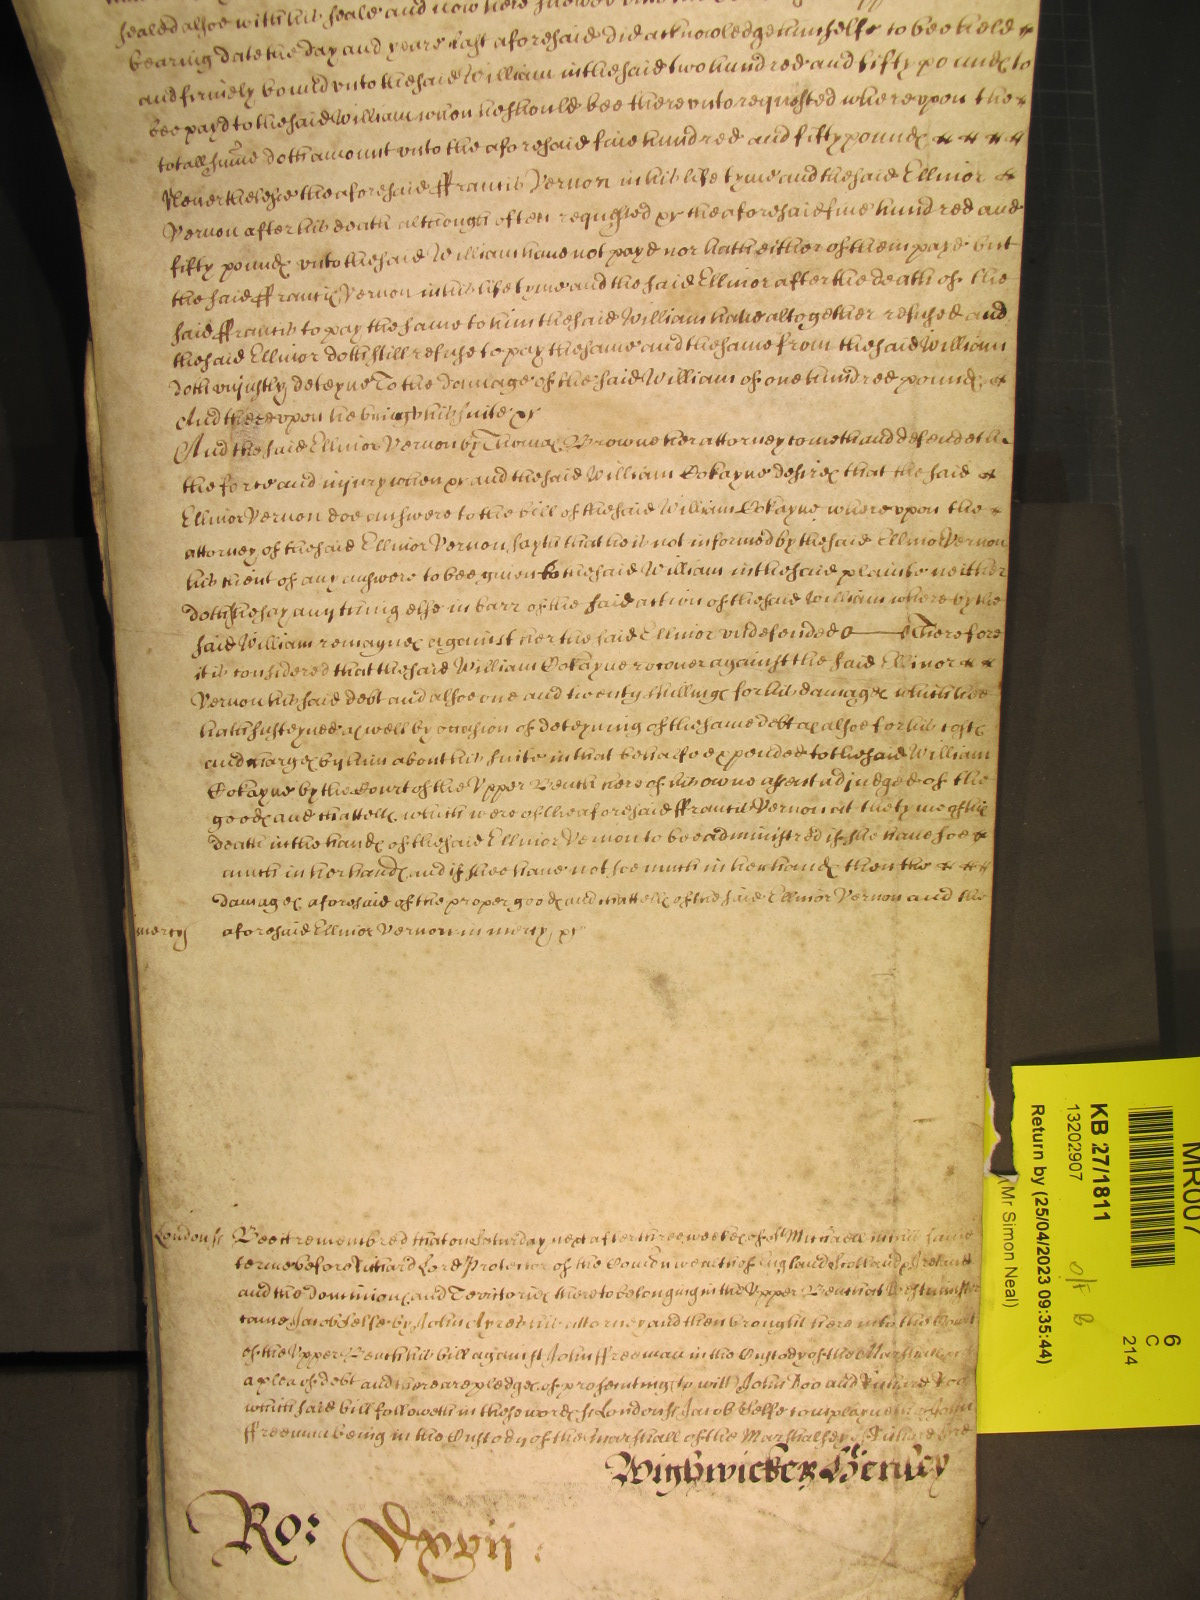 sealed alsoe with his seale and now here shewed
bearing date the day and yeare last aforesaid did acknowledge himselfe to bee held
and firmely bound vnto the said William in the said two hundred and fifty pounds to
bee payd to the said William when he should bee therevnto requested wherevpon the
totall sume doth amount vnto the aforesaid five hundred and fifty pounds
Neverthelesse the aforesaid ffrancis Vernon in his life tyme and the said Ellinor
Vernon after his death although often requested &c the aforesaid five hundred and
fifty pounds vnto the said William have not payd nor hath either of them payd but
the said ffrancis Vernon in his life tyme and the said Ellinor after the death of the
said ffrancis to pay the same to him the said William have altogether refused and
the said Ellinor doth still refuse to pay the same and the same from the said William
doth vniustly deteyne To the damage of the said William of one hundred pounds
And therevpon he brings his suite &c
And the said Ellinor Vernon by Thomas Browne her attorney cometh and defendeth
the force and iniury when &c and the said William Cokayne desires that the said
Ellinor Vernon doe answere to the bill of the said William Cokayne wherevpon the
attorney of the said Ellinor Vernon sayth that he is not informed by the said Ellinor Vernon
his client of any answere to bee given to the said William in the said plainte neither
doth she say any thing else in barr of the said action of the said William whereby the
said William remaynes against her the said Ellinor vndefended Therefore
it is considered that the said William Cokayne recover against the said Ellinor
Vernon his said debt and alsoe one and twenty shillings for his damages which hee
hath susteyned as well by occasion of deteyning of the same debt as alsoe for his costs
and charges by him about his suite in that behalfe expended to the said William
Cokayne by the Court of the Vpper Bench here of his owne assent adiudged of the
goods and chattells which were of the aforesaid ffrancis Vernon at the tyme of his
death in the hands of the said Ellinor Vernon to bee administred if she have soe
much in her hands and if shee have not soe much in her hands then the
damages aforesaid of the proper goods and chattells of the said Ellinor Vernon and the
mercy aforesaid Ellinor Vernon in mercy &c
London ss Bee it remembred that on Saturday next after three weekes of St Michaell in this same
terme before Richard Lord Protector of the Comonwealth of England Scotland & Ireland
and the Dominions and Territories thereto belonging in the Vpper Bench at Westminster
came Jacob Selfe by John Ayres his attorney and then brought here into the Court
of the Vpper Bench his bill against John ffreeman in the Custody of the Marshall
a plea of debt and there are pledges of prosecuting (to witt) John Doo and Richard Roo
which said bill followeth in these words ss London ss Jacob Selfe complaynes of John
ffreeman being in the Custody of the Marshall of the Marshalsey
Wightwicke & Henley
Ro: Dxxvij
MR007
6
C
214
KB 27/1811
13202907
o/f B
Return by (25/04/2023 09:35:44)
(Mr Simon Neal)